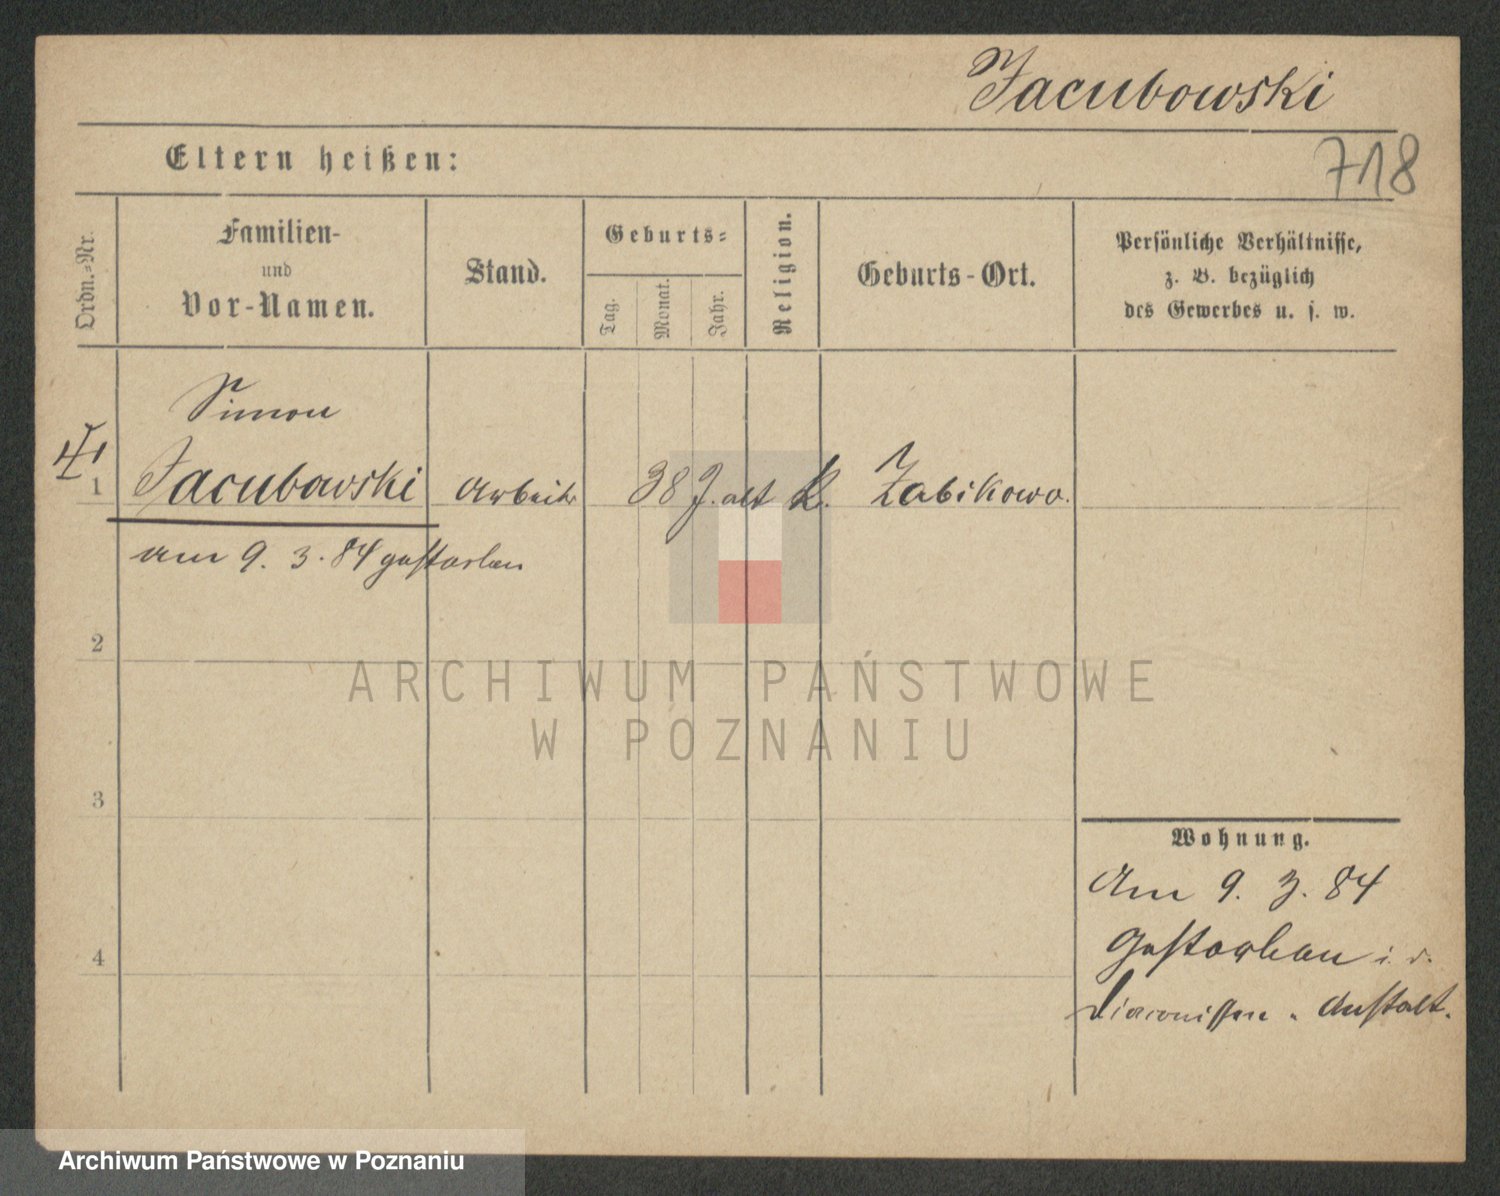 Jacubowski
718
Eltern heißen:
Ordn.-Nr.
Familien-
und
Vor-Namen.
Stand.
Geburts-
Tag.
Monat.
Jahr.
Religion.
Geburts-Ort.
Persönliche Verhältnisse,
z. B. bezüglich
des Gewerbes u. s. w.
Simon
1 Jacubowski Arbeiter 38 J. alt k. Zabikowo.
am 9. 3. 84 gestorben
2
3
4
Wohnung.
Am 9. 3. 84
gestorben i. d.
Diaconissen-Anstalt.
ARCHIWUM PAŃSTWOWE
W POZNANIU
Archiwum Państwowe w Poznaniu